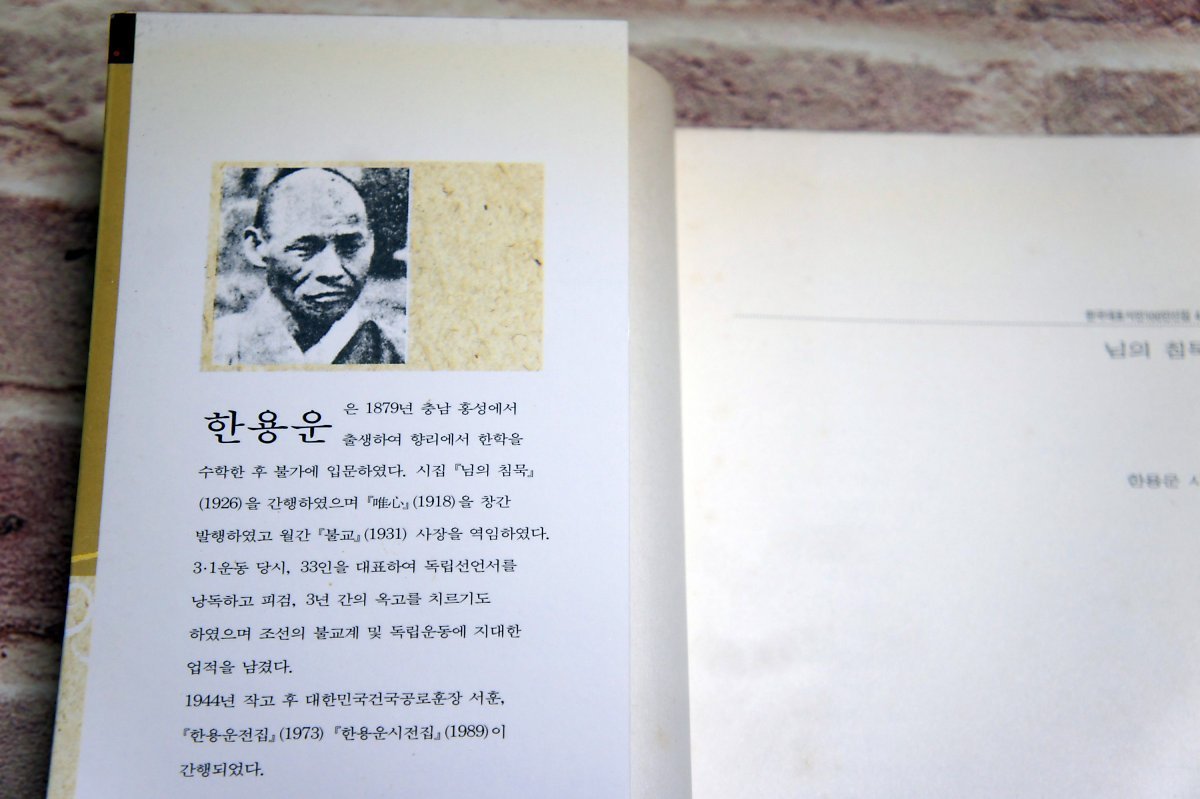 한용운은 1879년 충남 홍성에서
출생하여 향리에서 한학을
수학한 후 불가에 입문하였다. 시집 『님의 침묵』
(1926)을 간행하였으며 『唯心』(1918)을 창간
발행하였고 월간 『불교』(1931) 사장을 역임하였다.
3·1운동 당시, 33인을 대표하여 독립선언서를
낭독하고 피검, 3년 간의 옥고를 치르기도
하였으며 조선의 불교계 및 독립운동에 지대한
업적을 남겼다.
1944년 작고 후 대한민국건국공로훈장 서훈,
『한용운전집』(1973) 『한용운시전집』(1989)이
간행되었다.
님의 침묵
한용운 시